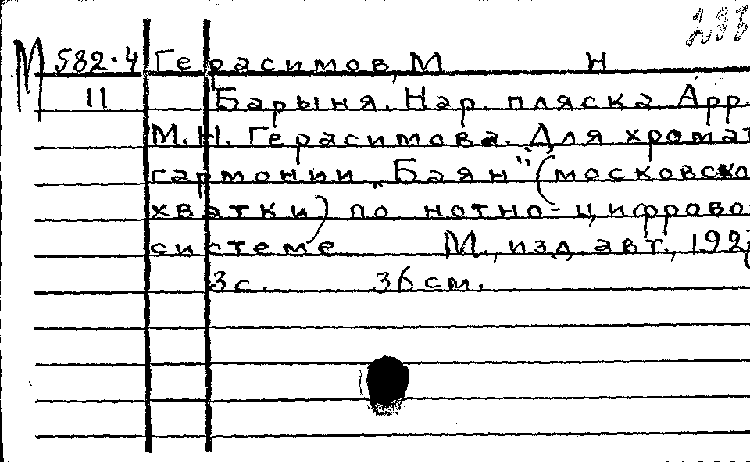 М 582.4 Герасимов, М Н
11 Барыня. Нар. пляска Арр.
М.Н. Герасимова. Для хромат
гармонии „Баян" (московско
хватки) по нотно-цифрово
системе М., изд. авт., 192
3 с. 36 см.